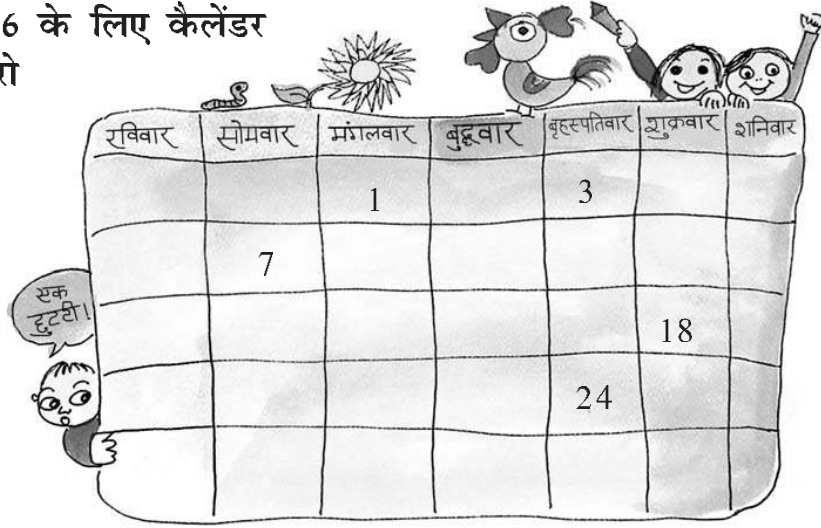 6 के लिए कैलेंडर
रो
रविवार सोमवार मंगलवार बुद्धवार बृहस्पतिवार शुक्रवार शनिवार
1 3
7
एक
छुटटी!
18
24